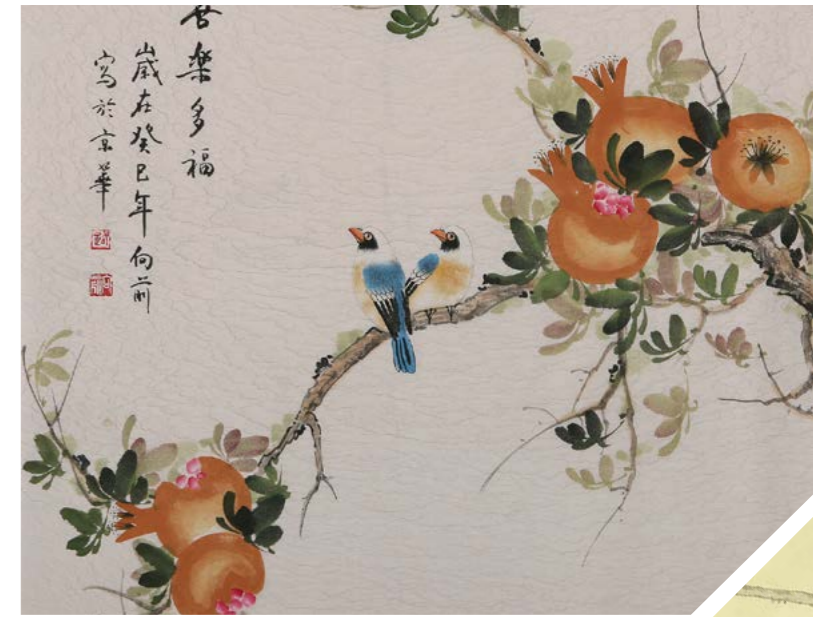 樂多福
歲在癸巳年 向前
寫於京華